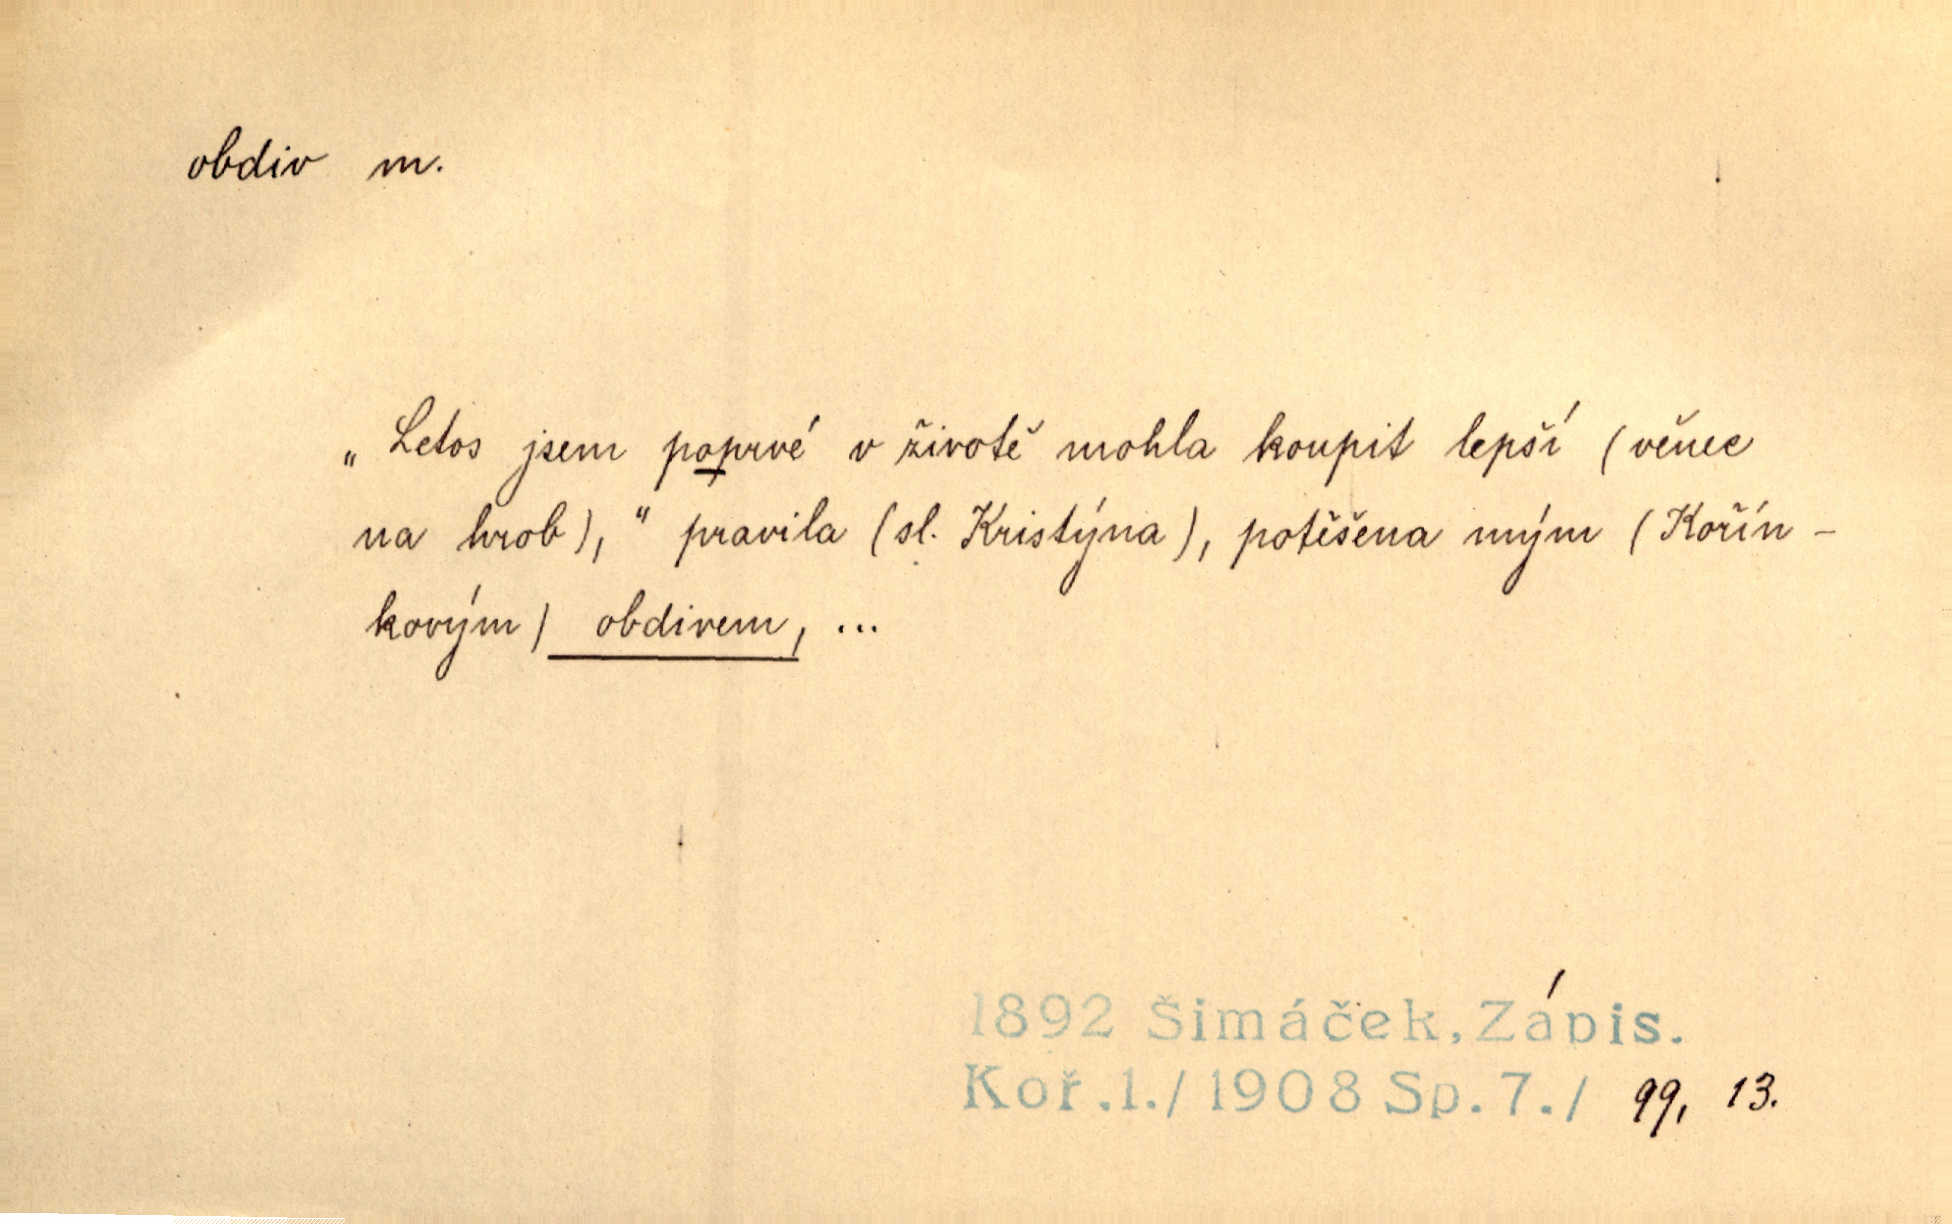 obdiv m.
„Letos jsem poprvé v životě mohla koupit lepší (věnec
na hrob),“ pravila (sl. Kristýna), potěšena mým (Kořín-
kovým) obdivem, ...
1892 Šimáček, Zápis.
Koř.1./1908 Sp.7./ 99, 13.